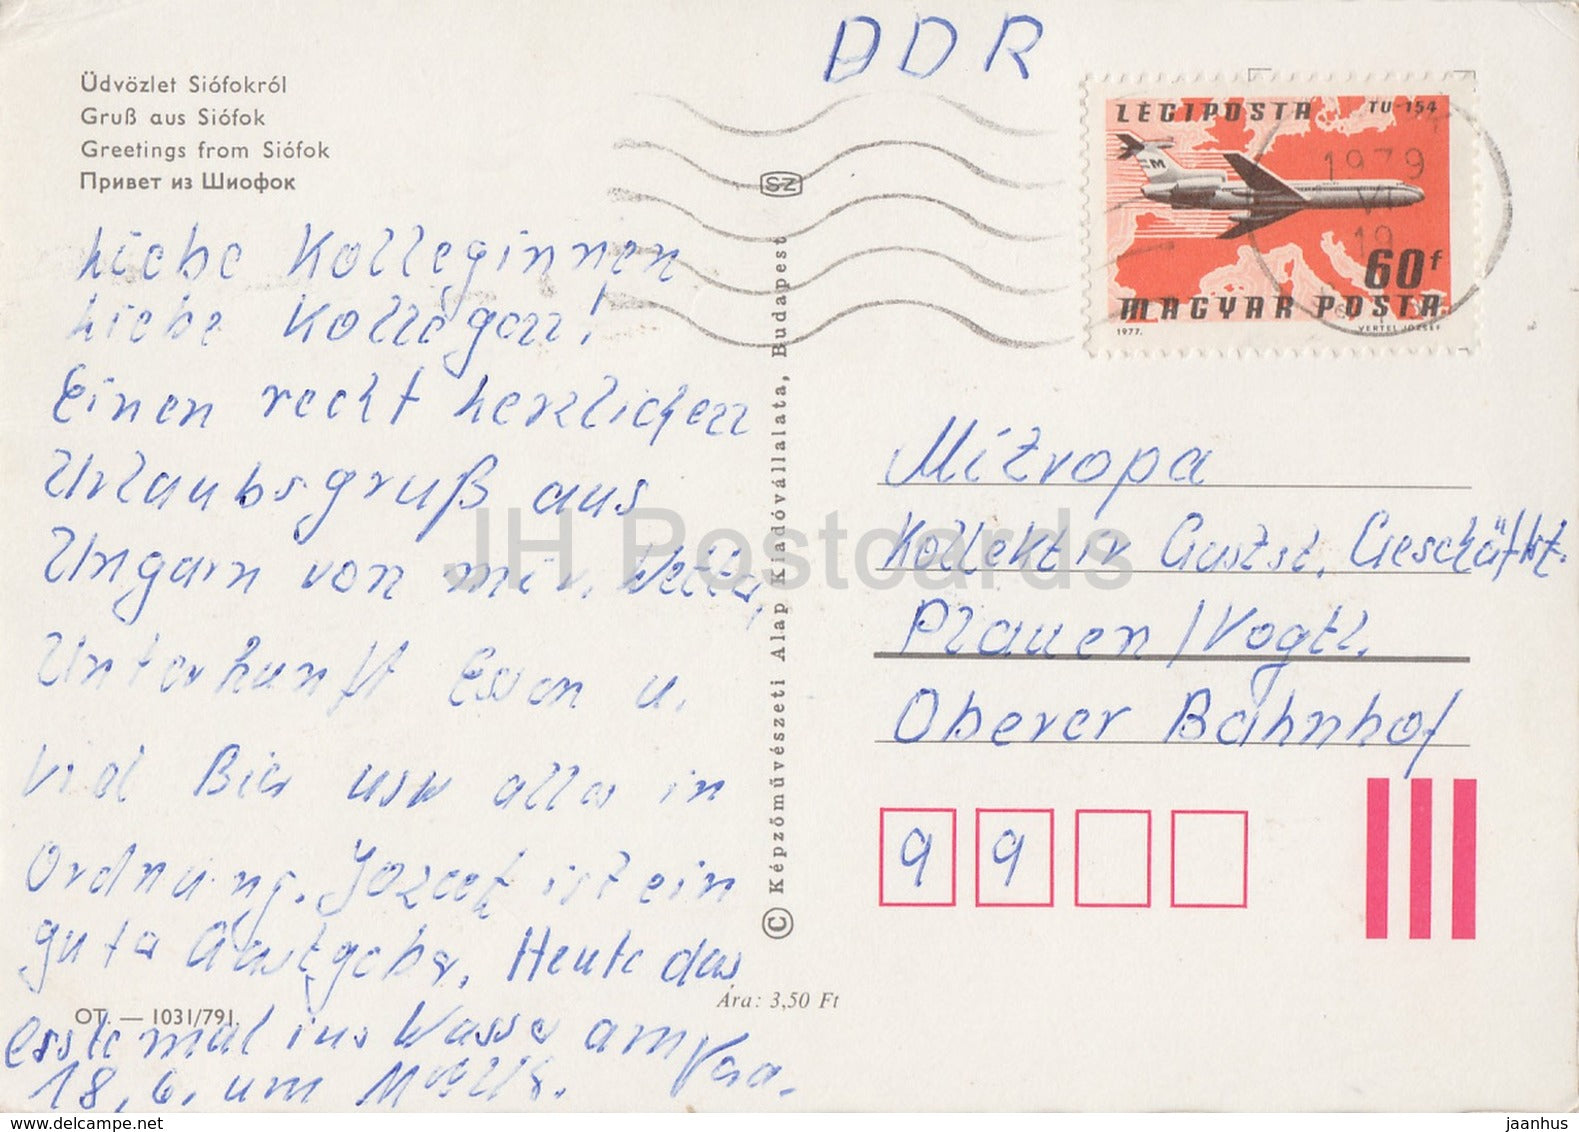 Üdvözlet Siófokról
Gruß aus Siófok
Greetings from Siófok
Привет из Шиофок
DDR
LÉGIPOSTA TU-154
M
1979
VI
19
60f
MAGYAR POSTA
1977. VERTEL JÓZSEF
SZ
Liebe Kolleginnen
Liebe Kollegen!
Einen recht herzlichen
Urlaubsgruß aus
Ungarn von mir. Wetter,
Unterkunft Essen u.
viel Bier usw alles in
Ordnung. Jozsef ist ein
guter Gastgeber. Heute das
erste mal ins Wasser am
18.6. um Vera.
OT. — 1031/791.
Ára: 3,50 Ft
© Képzőművészeti Alap Kiadóvállalata, Budapest
Mitropa
Kollektiv Gastst. Geschäftst.
Plauen/Vogtl.
Oberer Bahnhof
99
JH Postcards
www.delcampe.net
jaanhus